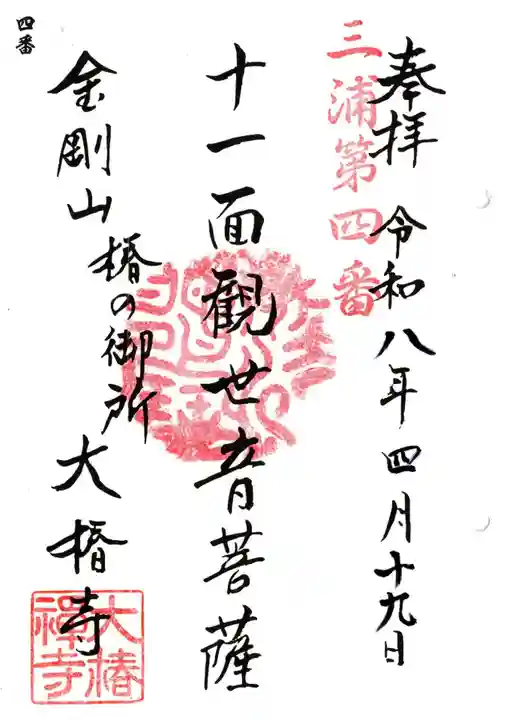 奉拝 令和八年四月十九日
三浦第四番
十一面觀世音菩薩
金剛山 椿の御所 大椿寺
四番
大椿
禅寺